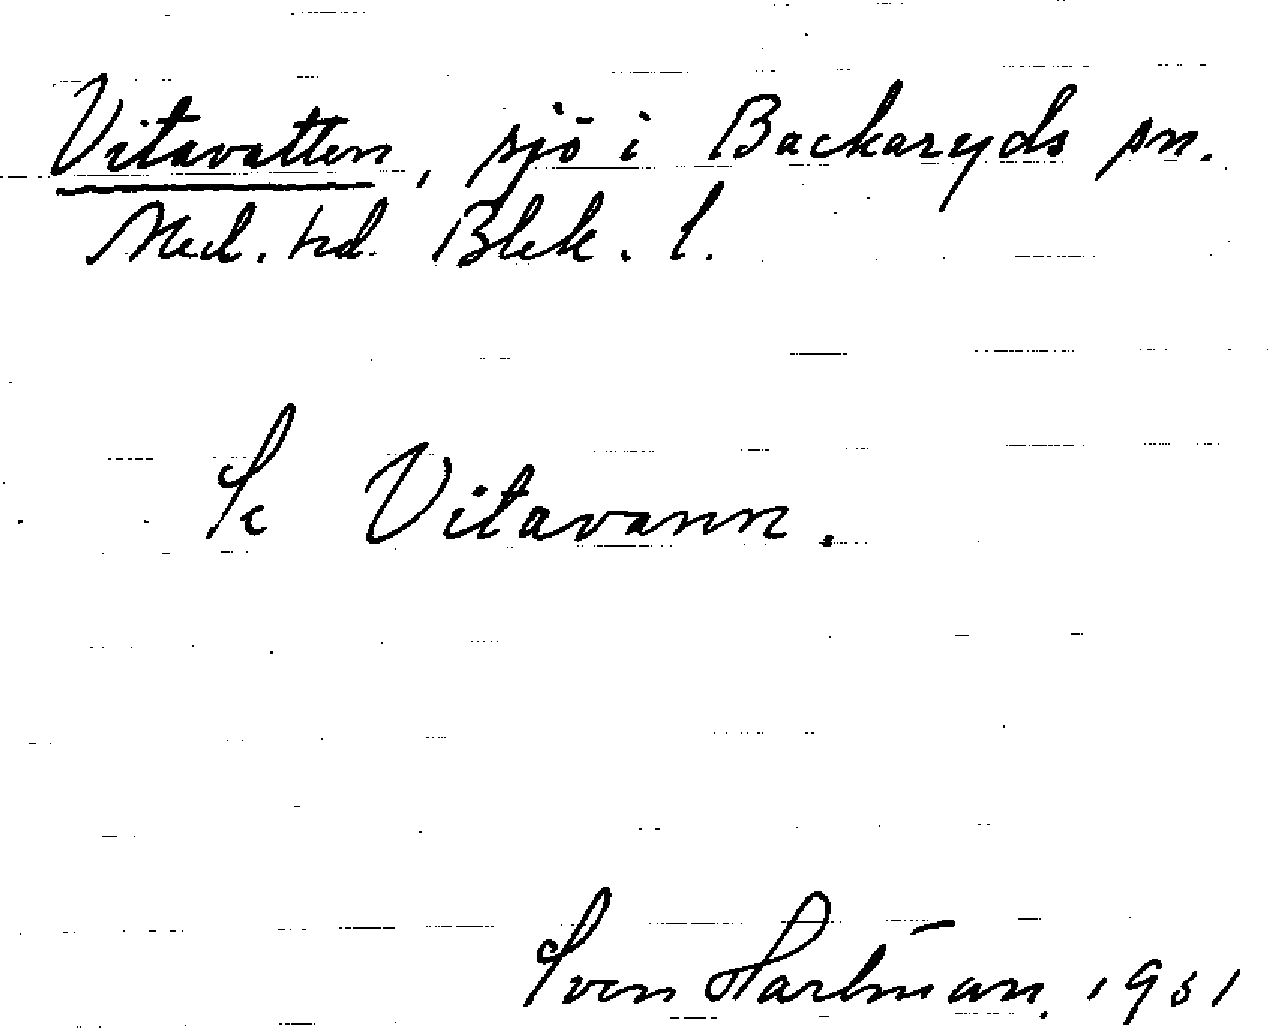 Vitavatten, sjö i Backaryds sn.
Med. hd. Blek. l.
Sc Vitavann.
Sven Hartman. 1951